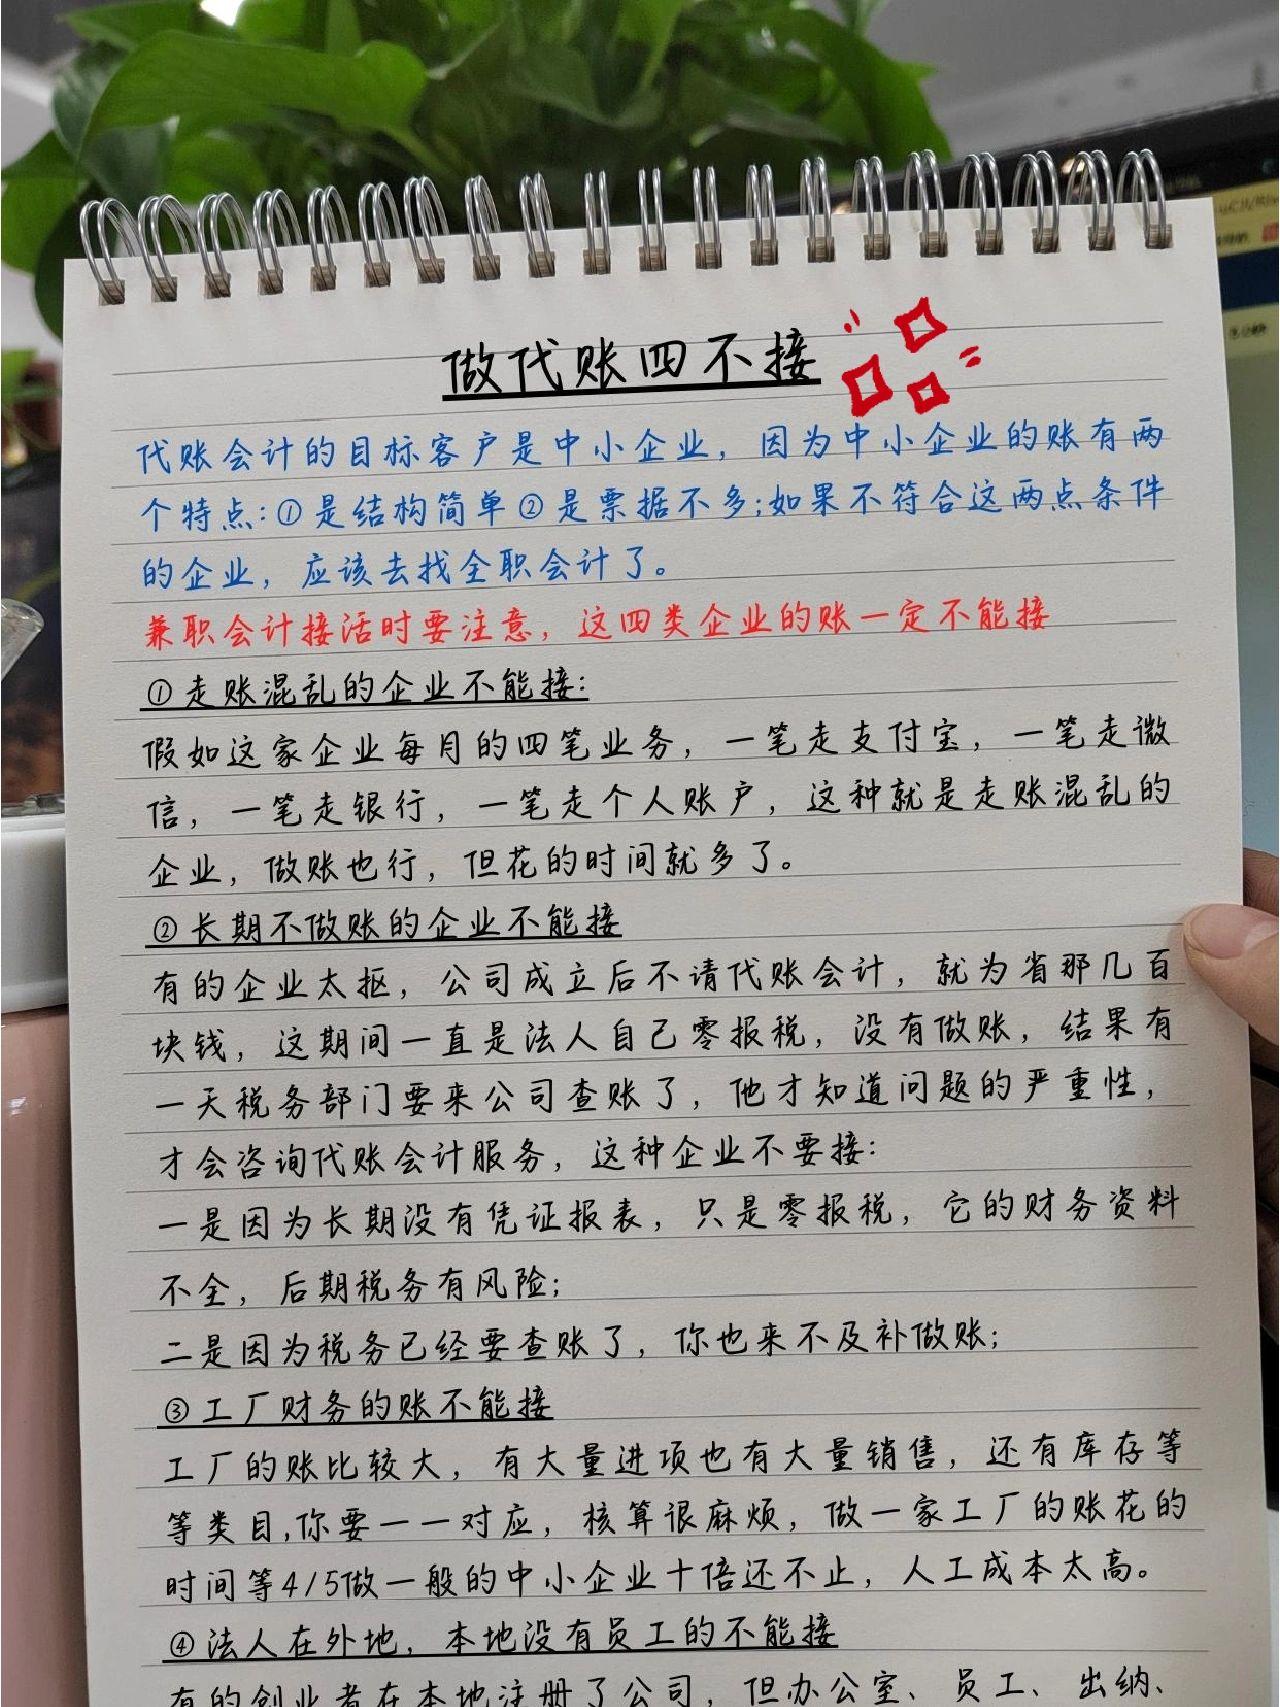 做代账四不接
代账会计的目标客户是中小企业，因为中小企业的账有两
个特点：①是结构简单②是票据不多；如果不符合这两点条件
的企业，应该去找全职会计了。
兼职会计接活时要注意，这四类企业的账一定不能接
①走账混乱的企业不能接：
假如这家企业每月的四笔业务，一笔走支付宝，一笔走微
信，一笔走银行，一笔走个人账户，这种就是走账混乱的
企业，做账也行，但花的时间就多了。
②长期不做账的企业不能接
有的企业太抠，公司成立后不请代账会计，就为省那几百
块钱，这期间一直是法人自己零报税，没有做账，结果有
一天税务部门要来公司查账了，他才知道问题的严重性，
才会咨询代账会计服务，这种企业不要接：
一是因为长期没有凭证报表，只是零报税，它的财务资料
不全，后期税务有风险；
二是因为税务已经要查账了，你也来不及补做账；
③工厂财务的账不能接
工厂的账比较大，有大量进项也有大量销售，还有库存等
等类目，你要一一对应，核算很麻烦，做一家工厂的账花的
时间等4/5做一般的中小企业十倍还不止，人工成本太高。
④法人在外地，本地没有员工的不能接
有的创业者在本地注册了公司，但办公室、员工、出纳、